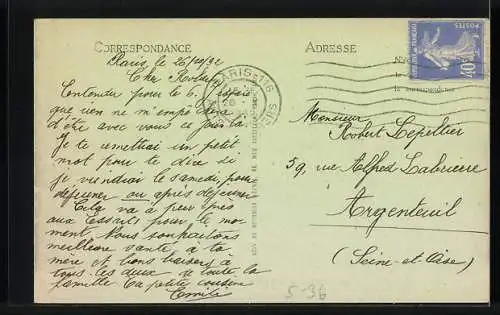 CORRESPONDANCE
ADRESSE
Paris le 26/10/32
Cher Robert
Entendu pour le 6. J'espère
que rien ne m'empêchera
d'être avec vous ce jour là.
Je te remettrai un petit
mot pour te dire si
je viendrai le samedi, pour
déjeuner ou après déjeuner
Cela va à peu près
aux Essarts pour le mo-
ment. Nous souhaitons
meilleure santé à ta
mère et bons baisers à
tous les deux de toute la
famille Ta petite cousine
Emilie
PARIS 116
POSTES
40
Monsieur
Robert Lepellier
59, rue Alfred Labrierre
Argenteuil
(Seine-et-Oise)
5-36